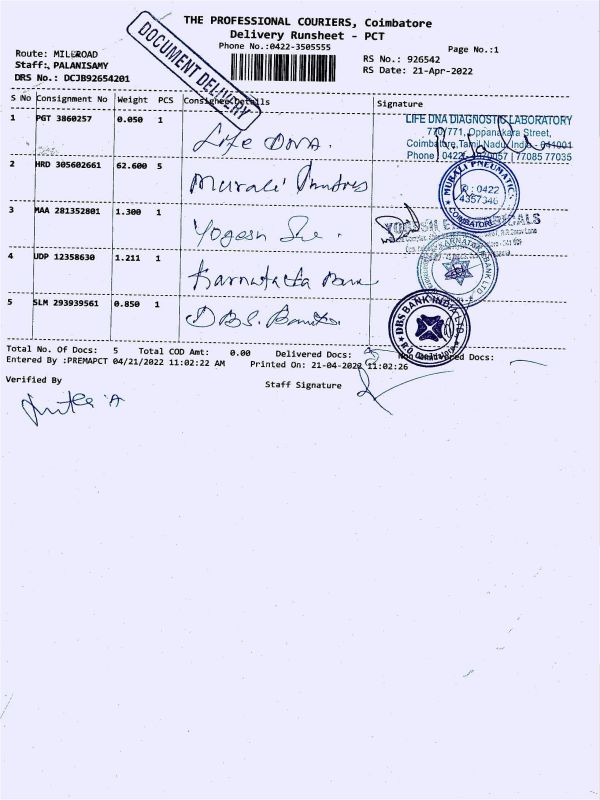 THE PROFESSIONAL COURIERS, Coimbatore
Delivery Runsheet - PCT
Phone No.:0422-3505555
Page No.:1
DOCUMENT DELIVERY
Route: MILLROAD
Staff: PALANISAMY
DRS No.: DCJB92654201
RS No.: 926542
RS Date: 21-Apr-2022
S No Consignment No Weight PCS Consignee Details Signature
1 PGT 3860257 0.050 1 Life DNA.
LIFE DNA DIAGNOSTIC LABORATORY
770/771, Oppanakara Street,
Coimbatore, Tamil Nadu, India - 641001
Phone 0422 | 77085 77035
2 HRD 305602661 62.600 5 Murali
MURALI PNEUMATIC
: 0422
4357346
COIMBATORE
3 MAA 281352801 1.300 1 Yogesh
YOGESH
4 UDP 12358630 1.211 1 Karnataka Bank
KARNATAKA BANK LTD
5 SLM 293939561 0.850 1 DBS. Bank
DBS BANK INDIA LTD
Total No. Of Docs: 5 Total COD Amt: 0.00 Delivered Docs: 5 Non Delivered Docs:
Entered By :PREMAPCT 04/21/2022 11:02:22 AM Printed On: 21-04-2022 11:02:26
Verified By
Staff Signature